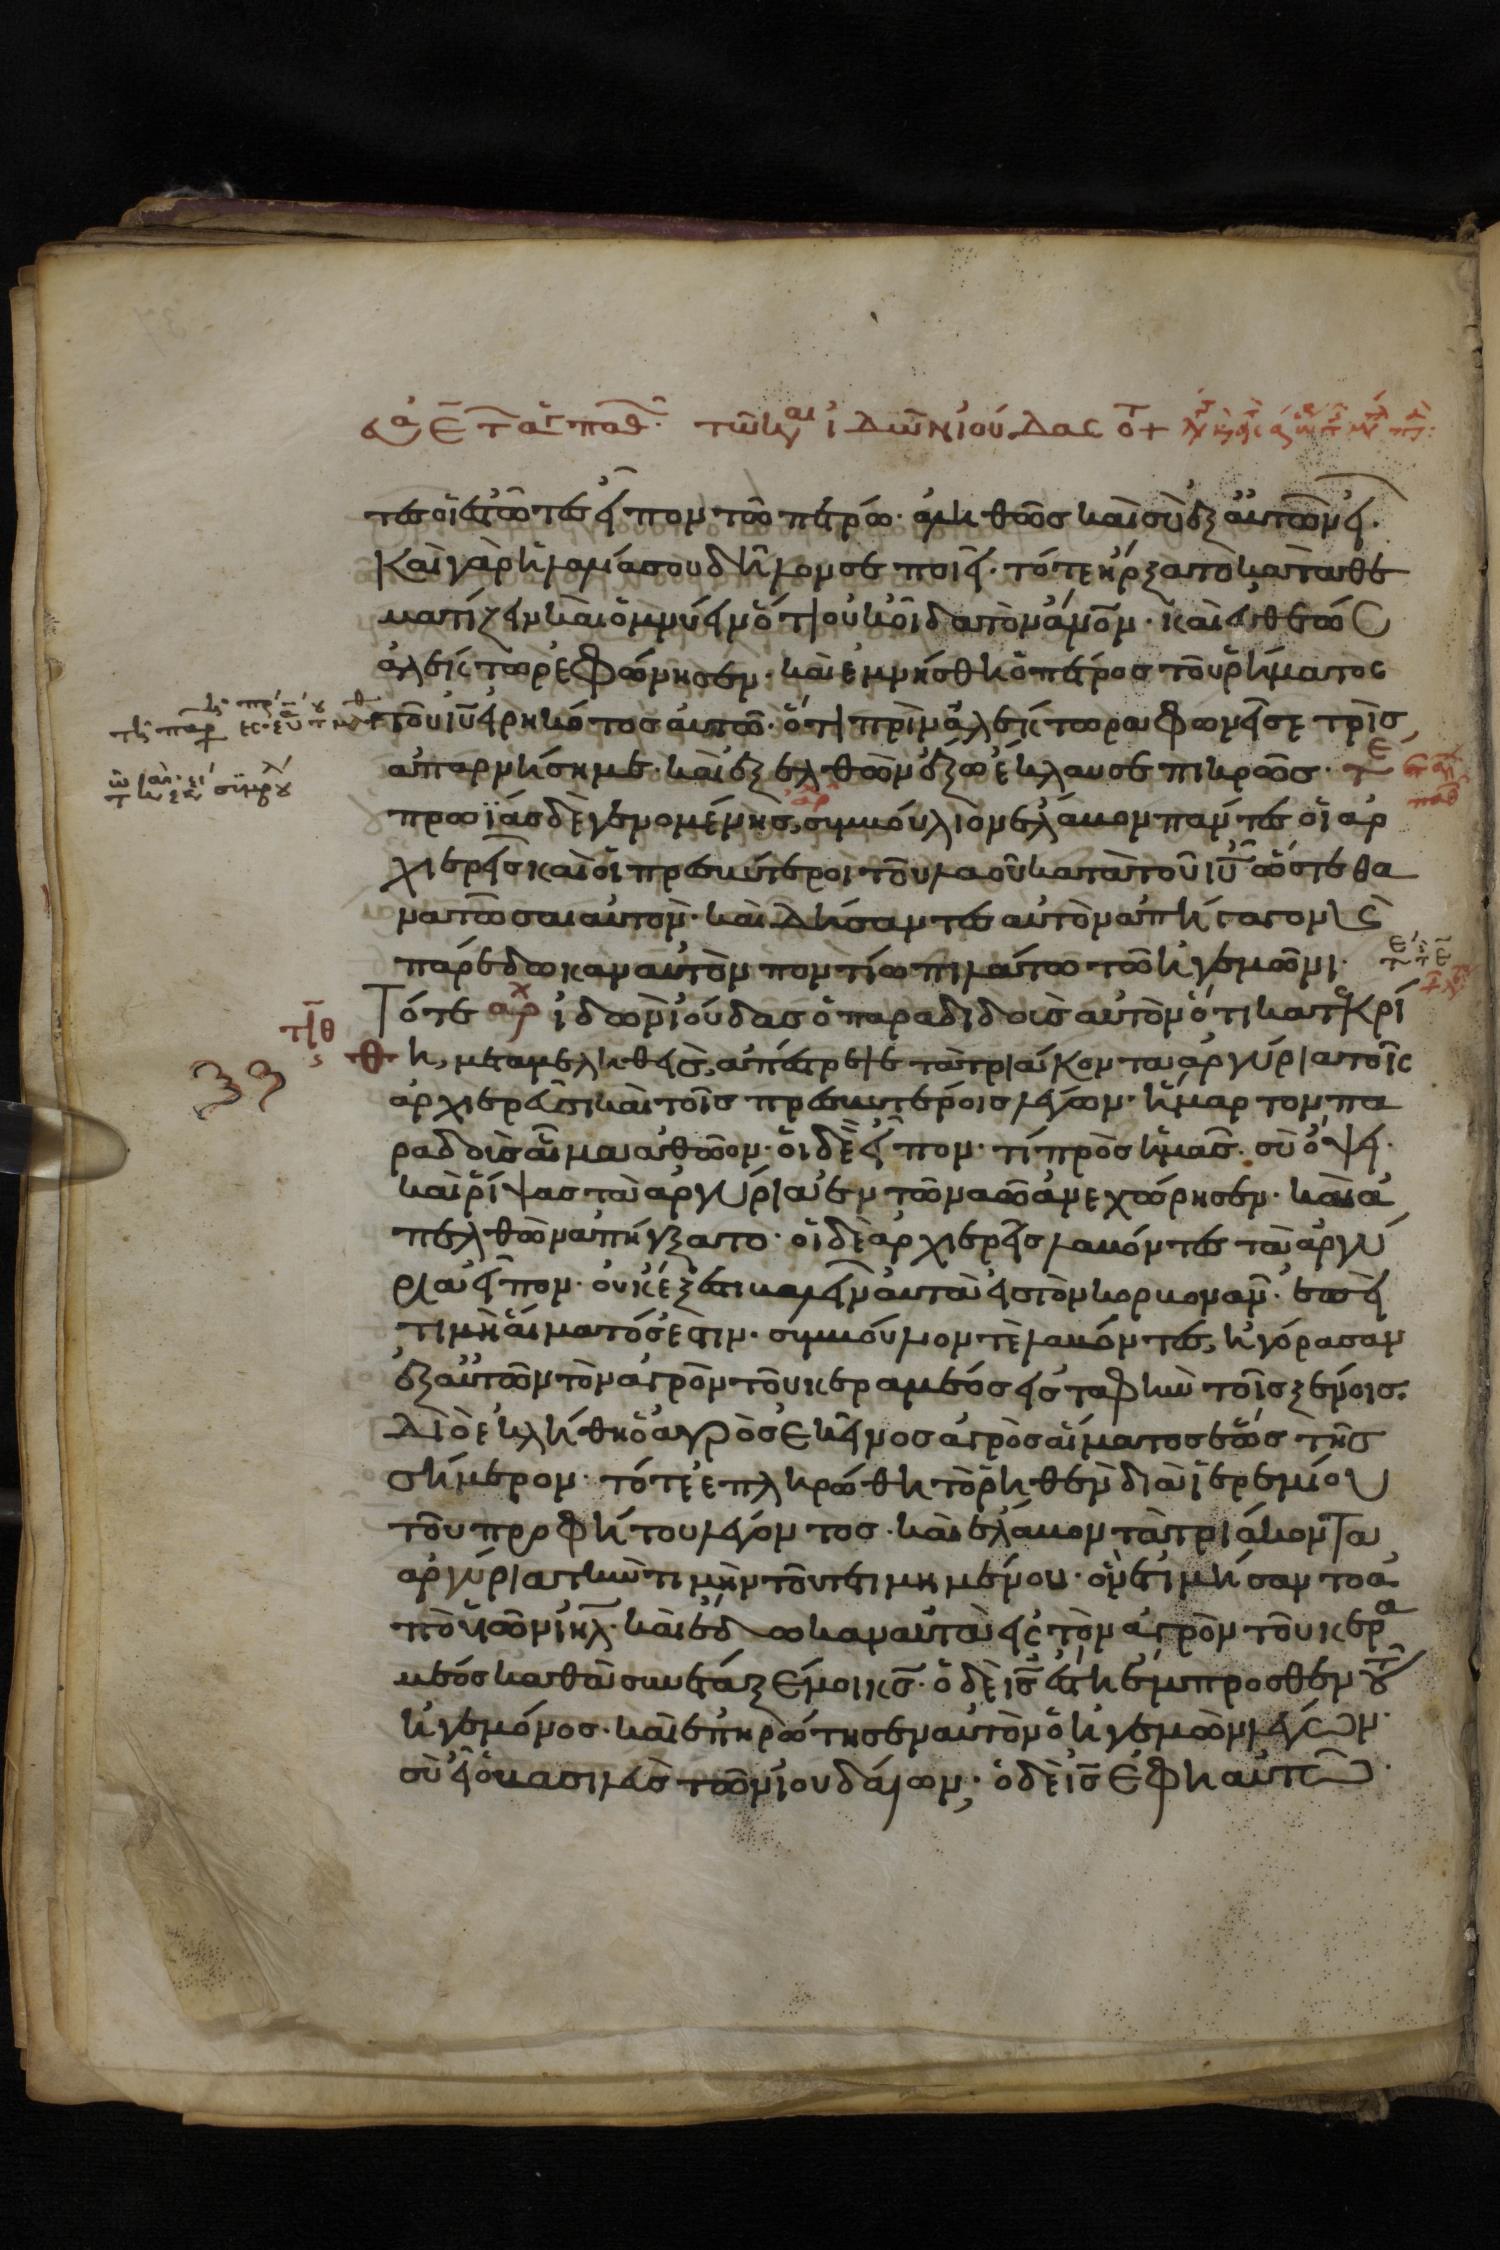 τῶ καιρῶ ἰδὼν ἰούδας ὅτι
τες οἱ ἑστῶτες εἶπον τῶ πέτρω· ἀληθῶς καὶ σὺ ἐξ αὐτῶν εἶ·
καὶ γὰρ ἡ λαλιά σου δῆλον σε ποιεῖ· τότε ἤρξατο καταθε
ματίζειν καὶ ὀμνύειν ὅτι οὐκ οἶδα τὸν ἄνον· καὶ εὐθέως
ἀλέκτωρ ἐφώνησεν· καὶ ἐμνήσθη ὁ πέτρος τοῦ ῥήματος
τοῦ ιυ εἰρηκότος αὐτῶ· ὅτι πρὶν ἀλέκτορα φωνῆσαι τρὶς
ἀπαρνήση με· καὶ ἐξελθὼν ἔξω ἔκλαυσε πικρῶς·
πρωΐας δὲ γενομένης, συμβούλιον ἔλαβον πάντες οἱ ἀρ
χιερεῖς καὶ οἱ πρεσβύτεροι τοῦ λαοῦ κατὰ τοῦ ιυ ὥστε θα
νατῶσαι αὐτόν· καὶ δήσαντες αὐτὸν ἀπήγαγον καὶ
παρέδωκαν αὐτὸν ποντίω πιλάτω τῶ ἡγεμῶνι·
Τότε ἰδὼν ἰούδας ὁ παραδιδοὺς αὐτὸν ὅτι κατεκρί
θη, μεταμεληθεὶς, ἀπέστρεψε τὰ τριάκοντα ἀργύρια τοῖς
ἀρχιερεῦσι καὶ τοῖς πρεσβυτέροις λέγων· ἥμαρτον πα
ραδοὺς αἷμα ἀθῶον· οἱ δὲ εἶπον· τί πρὸς ἡμᾶς· σὺ ὄψει·
καὶ ῥίψας τὰ ἀργύρια ἐν τῶ ναῶ ἀνεχώρησεν· καὶ ἀ
πελθὼν ἀπήγξατο· οἱ δὲ ἀρχιερεῖς λαβόντες τὰ ἀργύ
ρια εἶπον· οὐκ ἔξεστι βαλεῖν αὐτὰ εἰς τὸν κορβονᾶν· ἐπεὶ
τιμὴ αἵματός ἐστιν· συμβούλιον τὲ λαβόντες, ἠγόρασαν
ἐξ αὐτῶν τὸν ἀγρὸν τοῦ κεραμέως εἰς ταφὴν τοῖς ξένοις·
Διὸ ἐκλήθη ὁ ἀγρὸς ἐκεῖνος ἀγρὸς αἵματος ἕως τῆς
σήμερον· τότε ἐπληρώθη τὸ ῥηθὲν διὰ ἱερεμίου
τοῦ προφήτου λέγοντος· καὶ ἔλαβον τὰ τριάκοντα
ἀργύρια τὴν τιμὴν τοῦ τετιμημένου· ὃν ἐτιμήσαντο ἀ
πὸ υἱῶν ιηλ· καὶ ἔδωκαν αὐτὰ εἰς τὸν ἀγρὸν τοῦ κερα
μέως καθὰ συνέταξέ μοι κς· ὁ δὲ ις ἔστη ἔμπροσθεν τοῦ
ἡγεμόνος· καὶ ἐπηρώτησεν αὐτὸν ὁ ἡγεμὼν λέγων·
σὺ εἶ ὁ βασιλεὺς τῶν ἰουδαίων; ὁ δὲ ις ἔφη αὐτῶ·